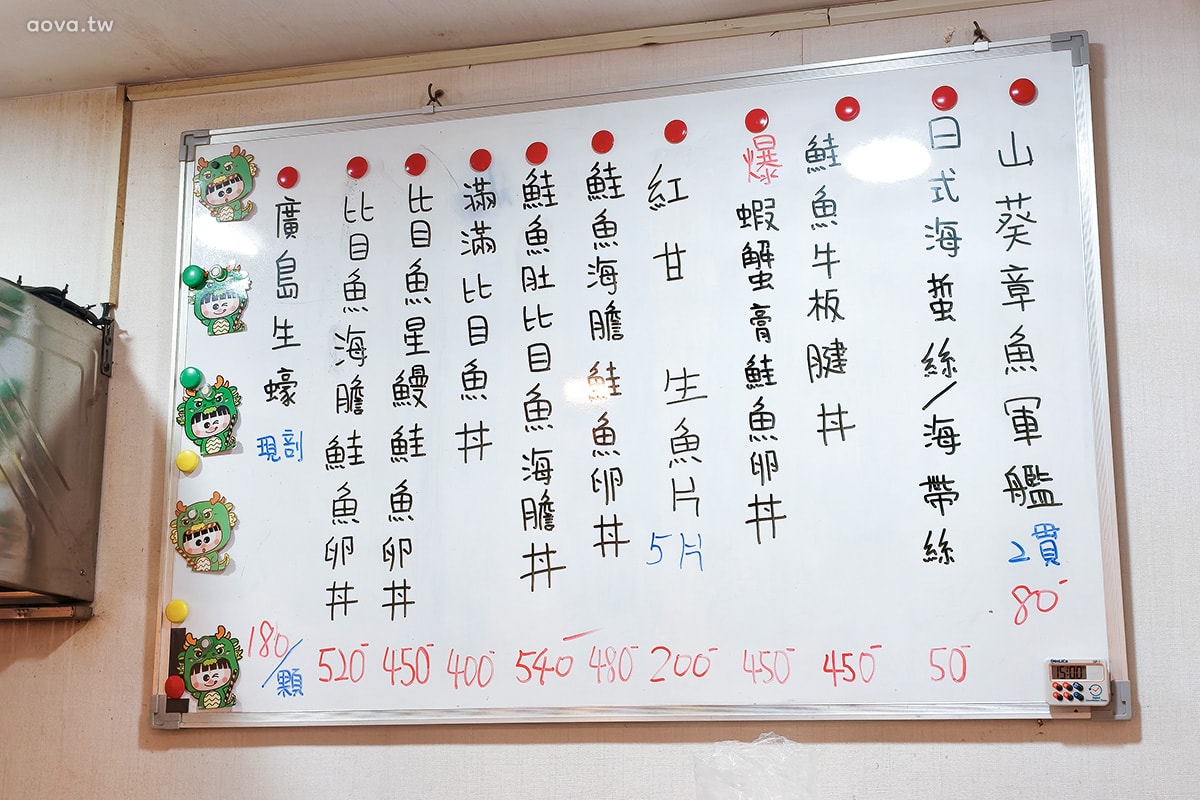 aova.tw
山葵章魚軍艦 2貫 80-
日式海蜇絲/海帶絲 50-
鮭魚牛板腱丼 450-
爆蝦蟹膏鮭魚卵丼 450-
紅甘 生魚片 5片 200-
鮭魚海膽鮭魚卵丼 480-
鮭魚肚比目魚海膽丼 540-
滿滿比目魚丼 400-
比目魚星鰻鮭魚卵丼 450-
比目魚海膽鮭魚卵丼 520-
廣島生蠔 現剖 180/顆
15:00